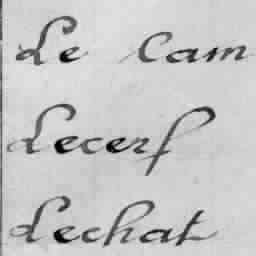 Le Cam
Lecerf
Lechat